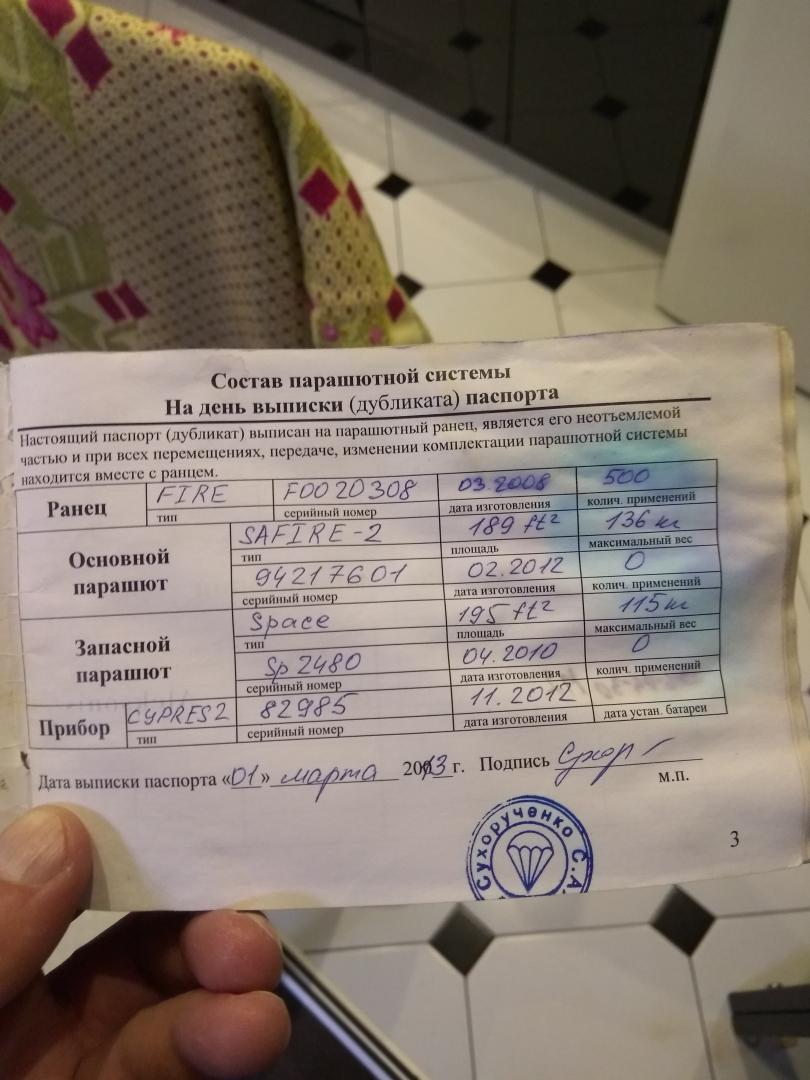 Состав парашютной системы
На день выписки (дубликата) паспорта
Настоящий паспорт (дубликат) выписан на парашютный ранец, является его неотъемлемой
частью и при всех перемещениях, передаче, изменении комплектации парашютной системы
находится вместе с ранцем.
Ранец FIRE F0020308 03.2008 500
тип серийный номер дата изготовления колич. применений
Основной парашют
SAFIRE-2 189 ft² 136 кг
тип площадь максимальный вес
94217601 02.2012 0
серийный номер дата изготовления колич. применений
Запасной парашют
Space 195 ft² 115 кг
тип площадь максимальный вес
Sp 2480 04.2010 0
серийный номер дата изготовления колич. применений
Прибор CYPRES2 82985 11.2012
тип серийный номер дата изготовления дата устан. батареи
Дата выписки паспорта «01» марта 2013 г. Подпись
м.п.
Сухорученко С.А.
3